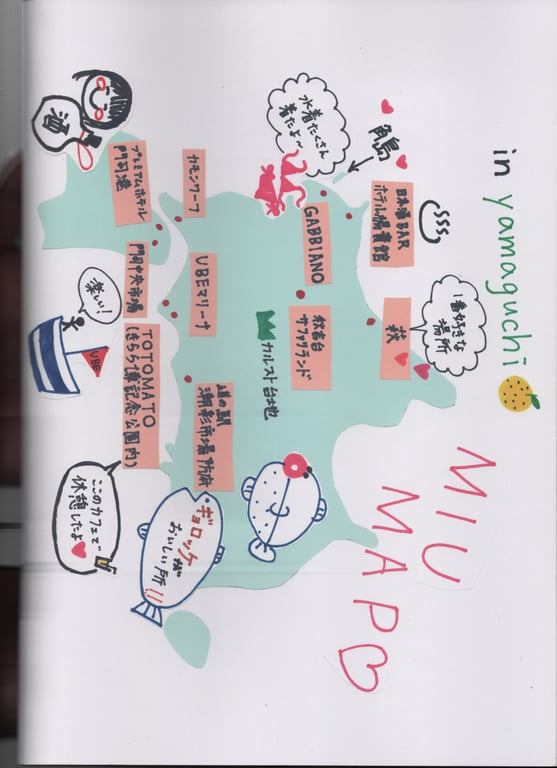 in yamaguchi
MIU
MAP
角島
水着たくさん
着たよ〜
日本酒BAR
ホテル楊貴館
1番好きな
場所
萩
GABBIANO
秋吉台
サファリランド
カルスト台地
カモンワーフ
UBEマリーナ
道の駅
潮彩市場 防府
プレミアムホテル
門司港
門司中央市場
TOTOMATO
(きらら博記念公園内)
酒
楽しい!
UBE
ここのカフェで
休憩したよ
ギョロッケが
おいしい所!!